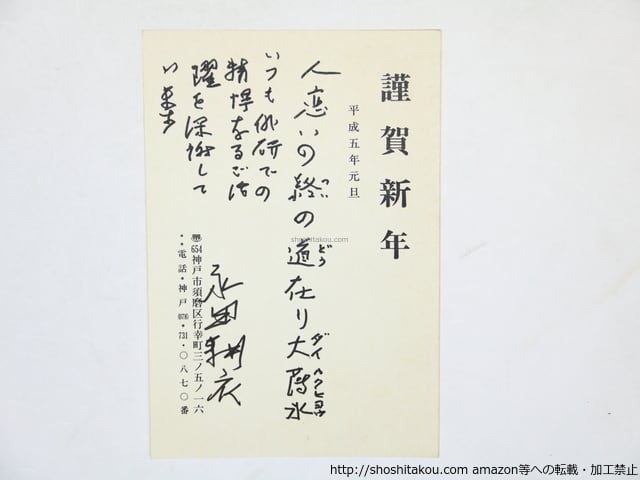 謹賀新年
平成五年元旦
人恋いの終の道在り大薄氷
つい
どう
ダイ
ハクヒョウ
いつも俳研での
精悍なるご活
躍を深謝して
い
永田耕衣
〒654神戸市須磨区行幸町三ノ五ノ一六
・・電話・神戸(078)・731・〇八七〇番
shoshitakou.com
http://shoshitakou.com amazon等への転載・加工禁止